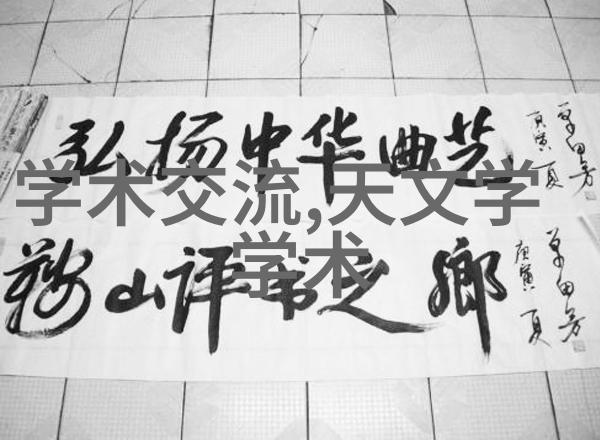 弘扬中华曲艺
庚寅夏
单田芳
学术交流,天文学
学术
鞍山评书之鄉
庚寅夏
单田芳